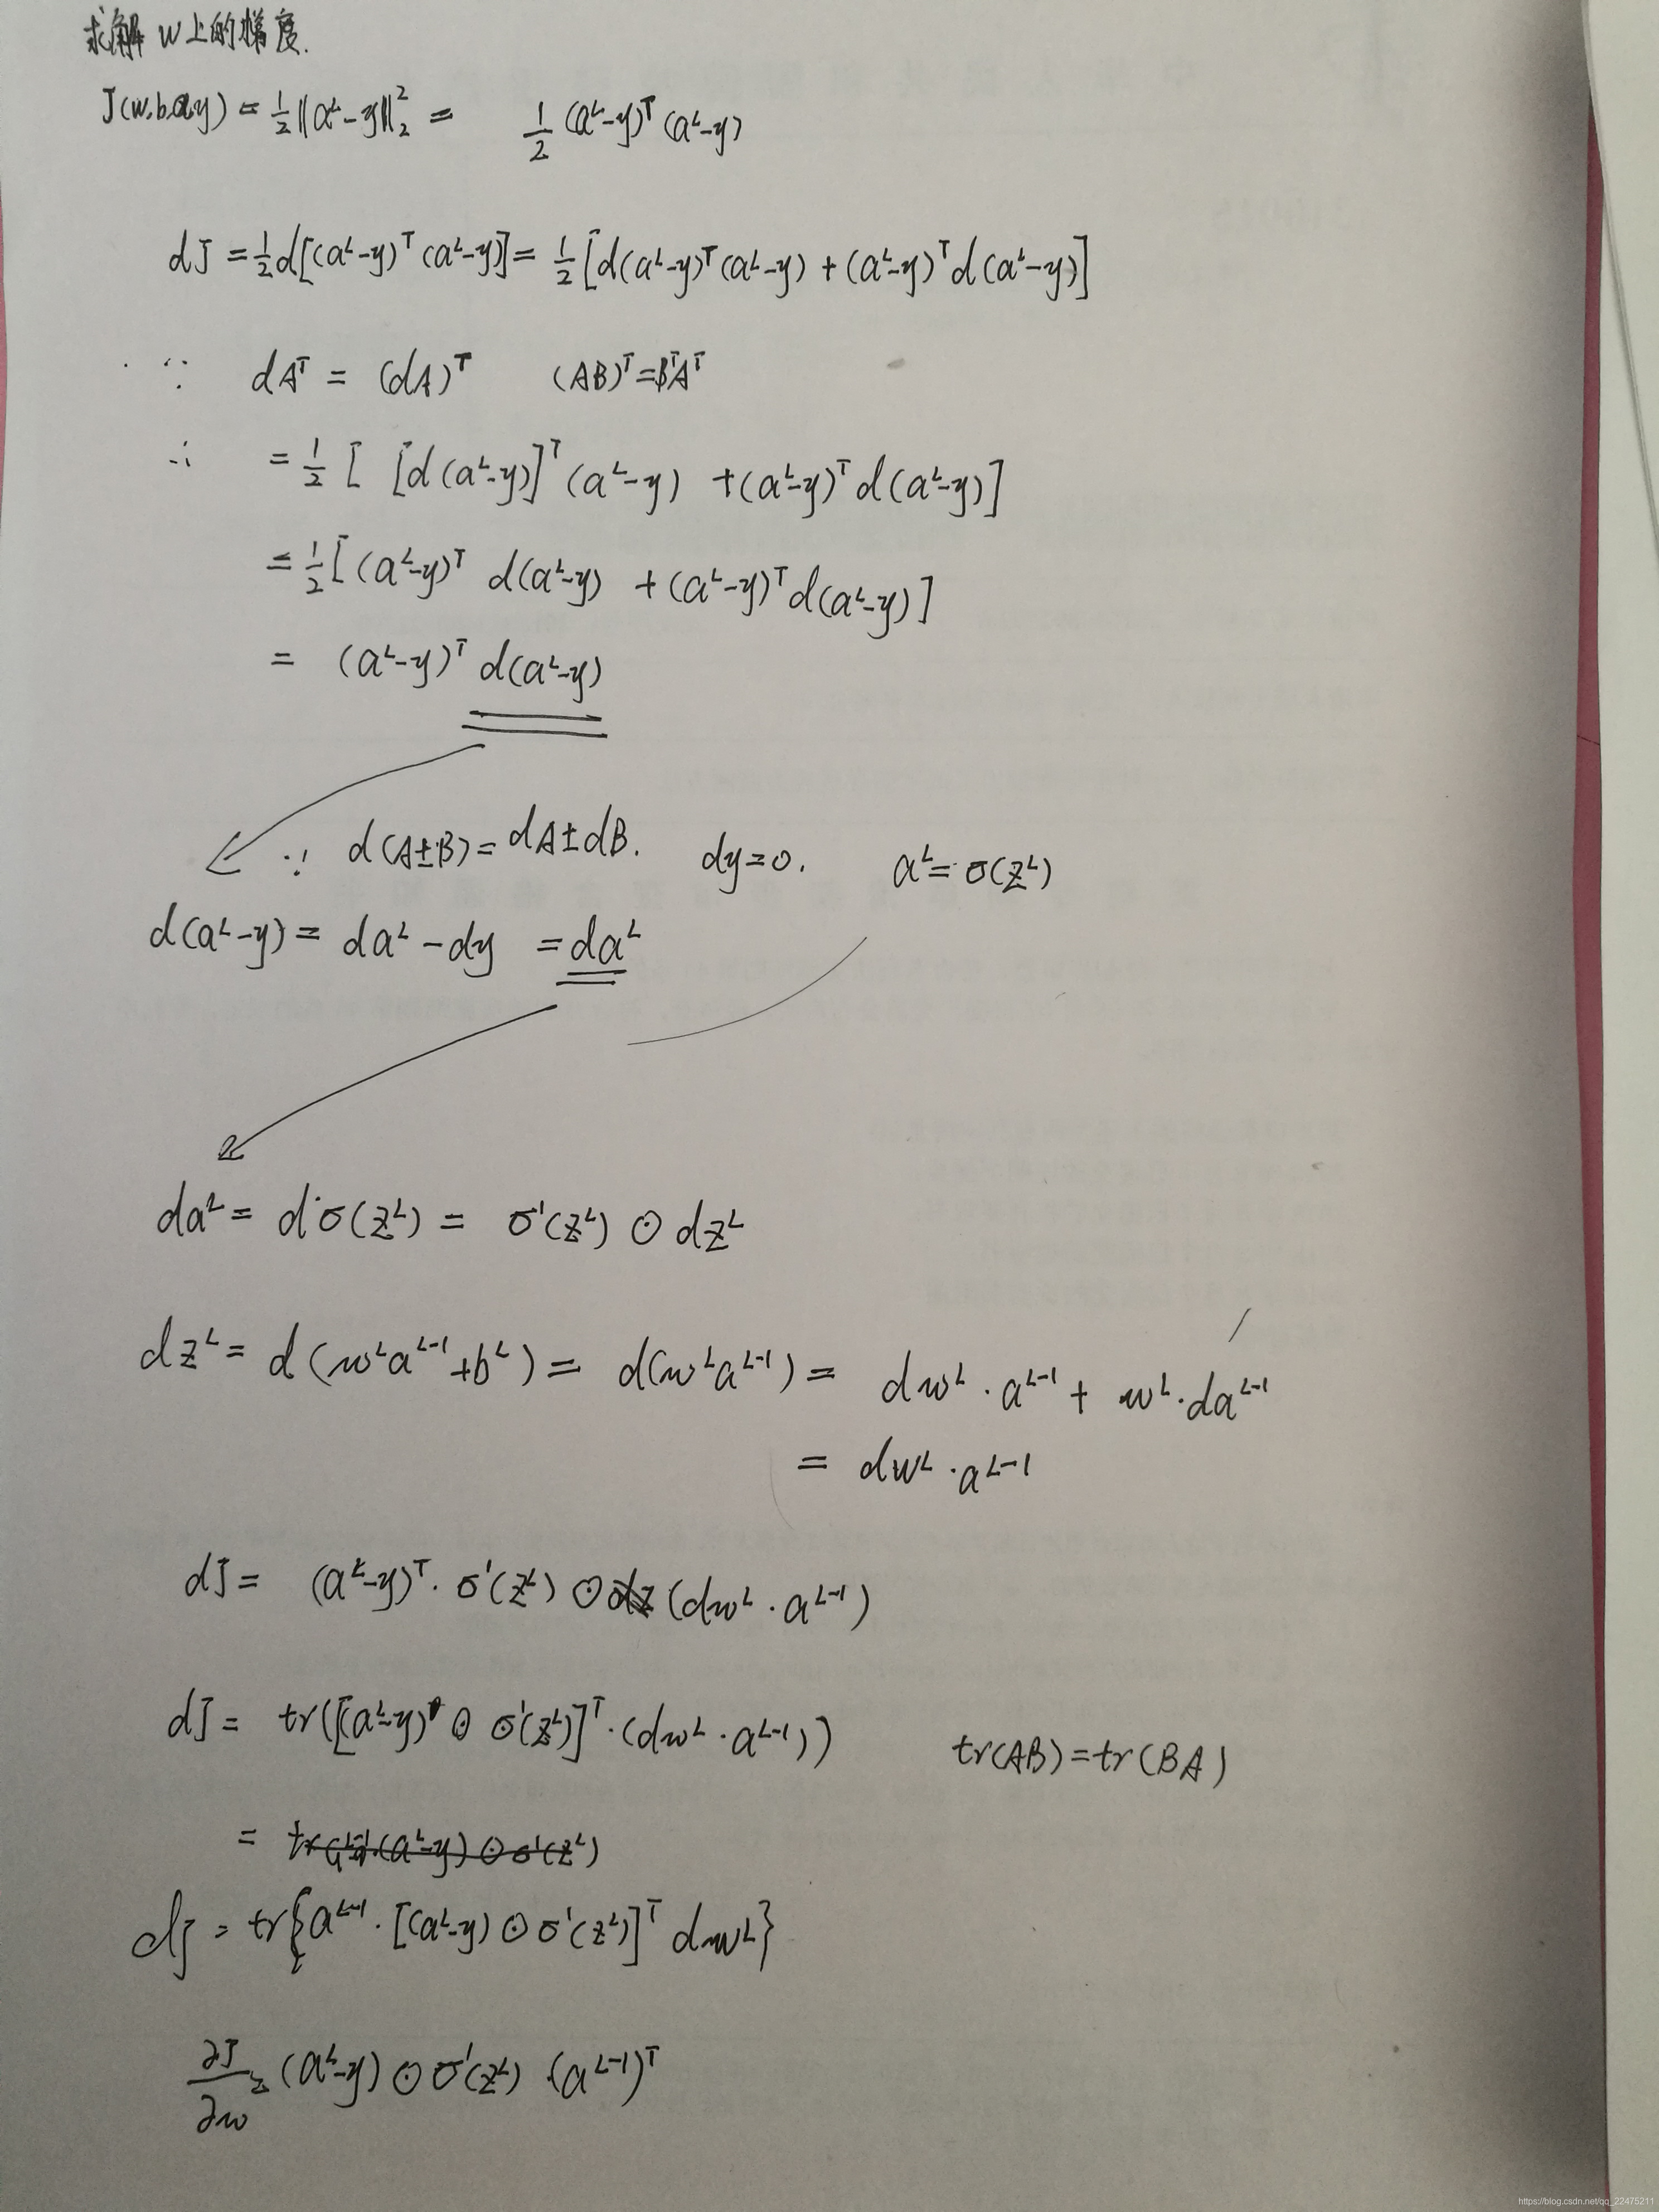 求解 w上的梯度.
J(w.b.a.y) = ½‖a^L-y‖₂² = ½ (a^L-y)^T (a^L-y)
dJ = ½d[(a^L-y)^T (a^L-y)] = ½ [d(a^L-y)^T (a^L-y) + (a^L-y)^T d(a^L-y)]
∵ dA^T = (dA)^T (AB)^T=B^TA^T
∴ = ½ [ [d(a^L-y)]^T (a^L-y) + (a^L-y)^T d(a^L-y)]
= ½ [(a^L-y)^T d(a^L-y) + (a^L-y)^T d(a^L-y)]
= (a^L-y)^T d(a^L-y)
∵ d(A±B) = dA±dB. dy=0. a^L = σ(z^L)
d(a^L-y) = da^L-dy = da^L
da^L = dσ(z^L) = σ'(z^L) ⊙ dz^L
dz^L = d(w^L a^{L-1}+b^L) = d(w^L a^{L-1}) = dw^L · a^{L-1} + w^L · da^{L-1}
= dw^L · a^{L-1}
dJ = (a^L-y)^T · σ'(z^L) ⊙ (dw^L · a^{L-1})
dJ = tr([(a^L-y) ⊙ σ'(z^L)]^T · (dw^L · a^{L-1})) tr(AB)=tr(BA)
=
dJ = tr{a^{L-1} · [(a^L-y) ⊙ σ'(z^L)]^T dw^L}
∂J/∂w = (a^L-y) ⊙ σ'(z^L) · (a^{L-1})^T
https://blog.csdn.net/qq_22475211